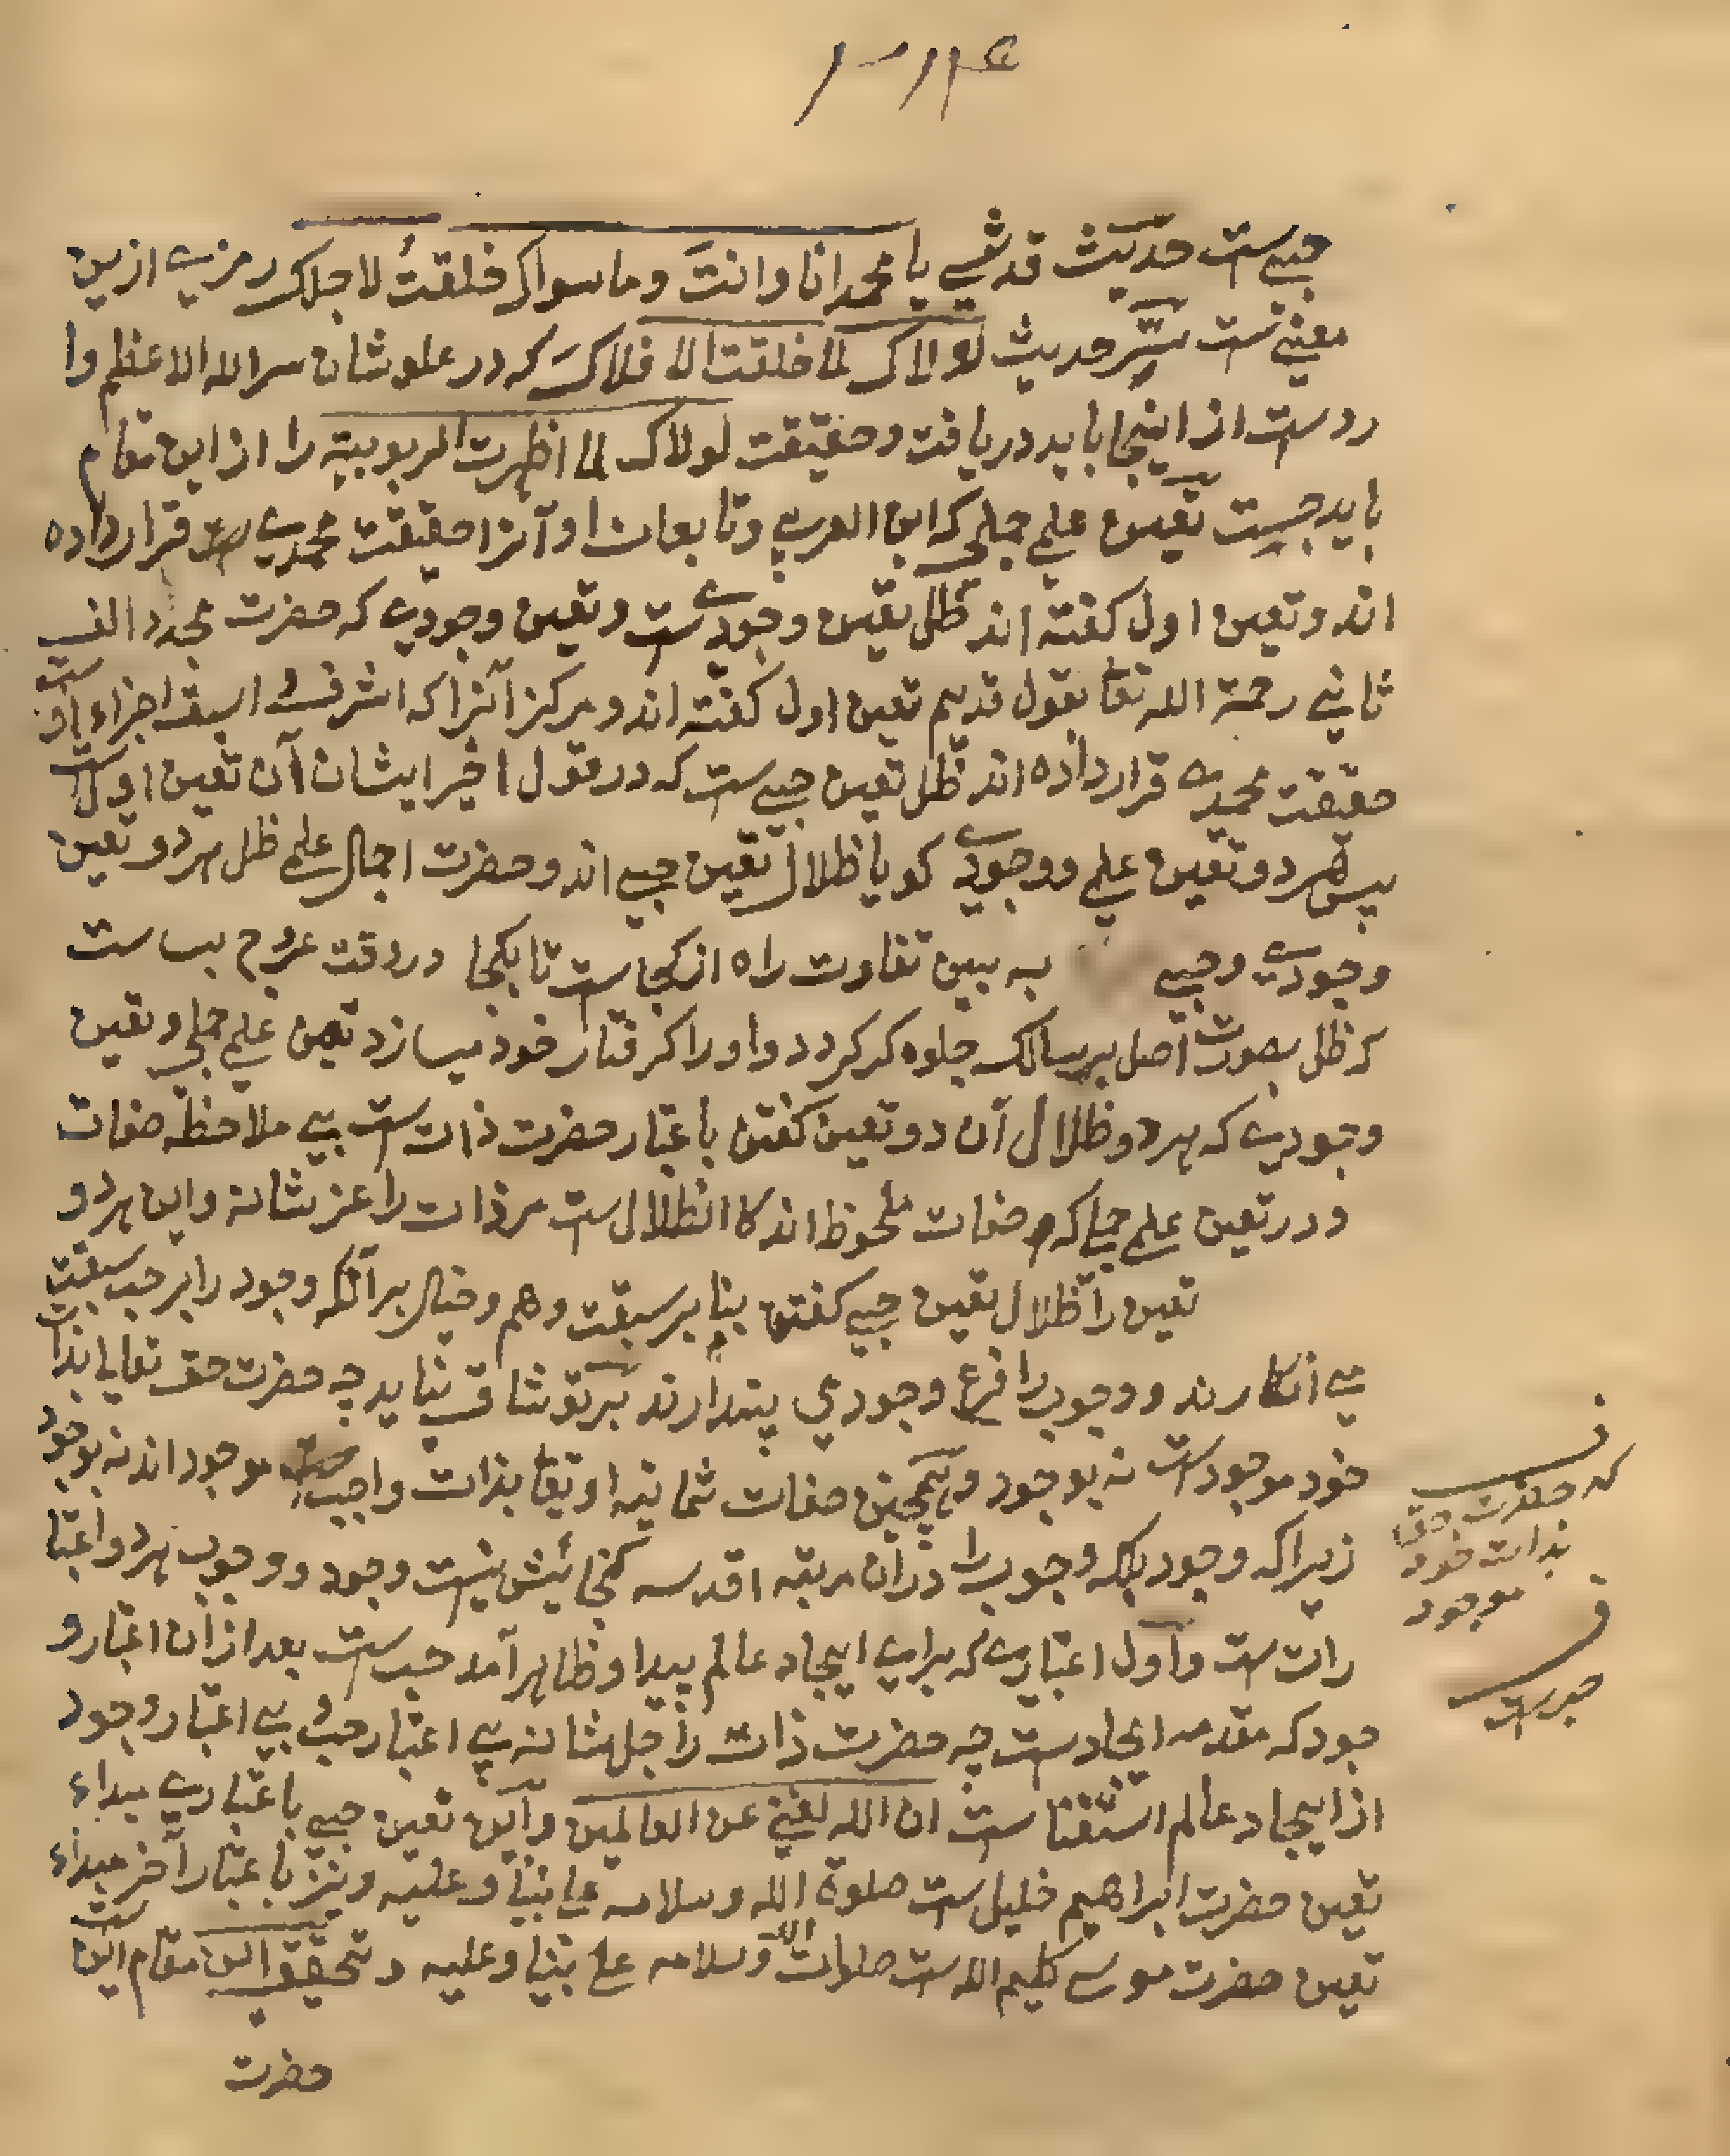 حبی ست حدیث قدسی یا محمد انا وانتَ وما سواک خلقتُ لاجلک رمزے ازین
معنی ست سِرّ حدیث لولاک لما خلقت الافلاکَ که در علو شان سر الله الاعظم وا
رد ست از اینجا باید دریافت و حقیقت لولاک لما اظهرت الربوبیة را از این مقام
باید جست تعین علمی جملی که ابن العربی و تابعان او آنرا حقیقت محمدے قرار داده
اند و تعین اول کفته اند ظل تعین وجودے ست و تعین وجودے که حضرت مجدد الف
ثانی رحمة الله تعا بقول قدیم تعین اول کفته اند و مرکز آنرا که اشرف و اسبق اجزاء اوست
حقیقت محمدے قرار داده اند ظل تعین حبی ست که در قول اخیر ایشان آن تعین اول ست
پس هر دو تعین علمی و وجودے کویا ظلال تعین حبی اند و حضرت اجمال علمی ظل هر دو تعین
وجودے و حبی به بین تفاوت راه از کجاست تا بکجا در وقت عروج بسا ست
که ظل بصورت اصل بر سالک جلوه کر کردد و او را کرفتار خود میسازد تعین علمی جملی و تعین
وجودے که هر دو ظلال آن دو تعین کفتن باعتبار حضرت ذات ست بی ملاحظه صفات
و در تعین علمی جملی که صفات ملحوظ اند کالظلال ست مر ذات را عز شانه و این هر دو
تعین را ظلال تعین حبی کفتن بنا بر سبقت وهم و خیال بر آنکه وجود را بر حب سبقت
می انکارند و وجوب را فرع وجودی پندارند بر تو شاق نیاید چه حضرت حق تعالی بذات
خود موجود ست نه بوجود و همچنین صفات ثمانیه او تعا بذات واجب موجود اند نه بوجود
زیرا که وجود بلکه وجوب را در آن مرتبه اقدسه کنجائیش نیست وجود و وجوب هر دو اعتبا
رات ست و اول اعتبارے که براے ایجاد عالم پیدا و ظاهر آمد حب ست بعد از ان اعتبار و
جود که مقدمه ایجاد ست چه حضرت ذات را جل شانه بی اعتبار حب و بی اعتبار وجود
از ایجاد عالم استغنا ست ان الله لغنی عن العالمین و این تعین حبی باعتبارے مبداء
تعین حضرت ابراهیم خلیل ست صلوة الله وسلامه علی نبینا وعلیه و نیز باعتبار آخر مبداء
تعین حضرت موسی کلیم الله ست صلوات الله وسلامه علی نبینا وعلیه و تحقیق این مقام این ست
حضرت
که حضرت حق
بذات خود
موجود